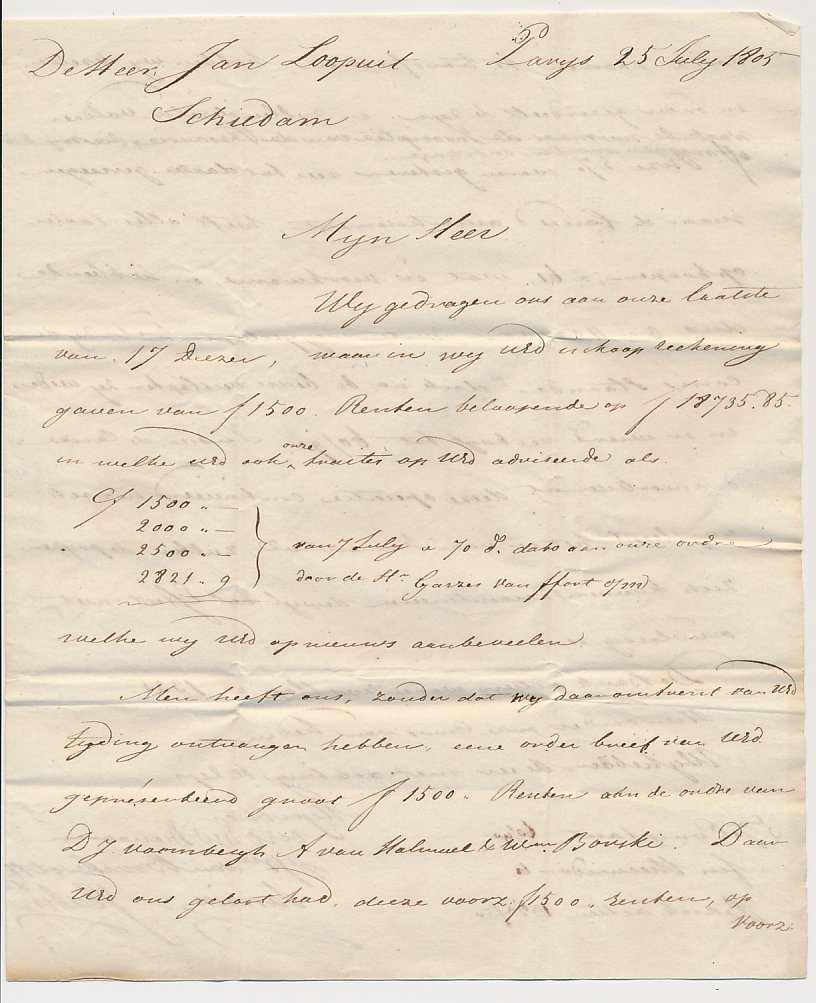 De Heer Jan Loopuit Parys 25 July 1805
Schiedam
Myn Heer
Wy gedragen ons aan onze laatste
van 17 deezer, waar in wy UEd inkoop reekening
gaven van f 1500. Renten beloopende op f 18735.85.
in welke UEd ook onze traites op UEd adviseerde als
Cf 1500 „ —
2000 „ —
2500 „ —
2821 „ 9
van 7 July a 70 d. dato aan onze ordre
door de Hr van ffort o/m
welke wy UEd op nieuws aanbeveelen
Men heeft ons, zonder dat wy daar omtrent van UEd
tyding ontvangen hebben, eene order brief van UEd
gepresenteerd groot f 1500 „ Renten aan de ordre van
D J. voombergh A van Halmael & Wm Borski. Daar
UEd ons gelast had, deeze voorz: f 1500 „ renten, op
voorz: